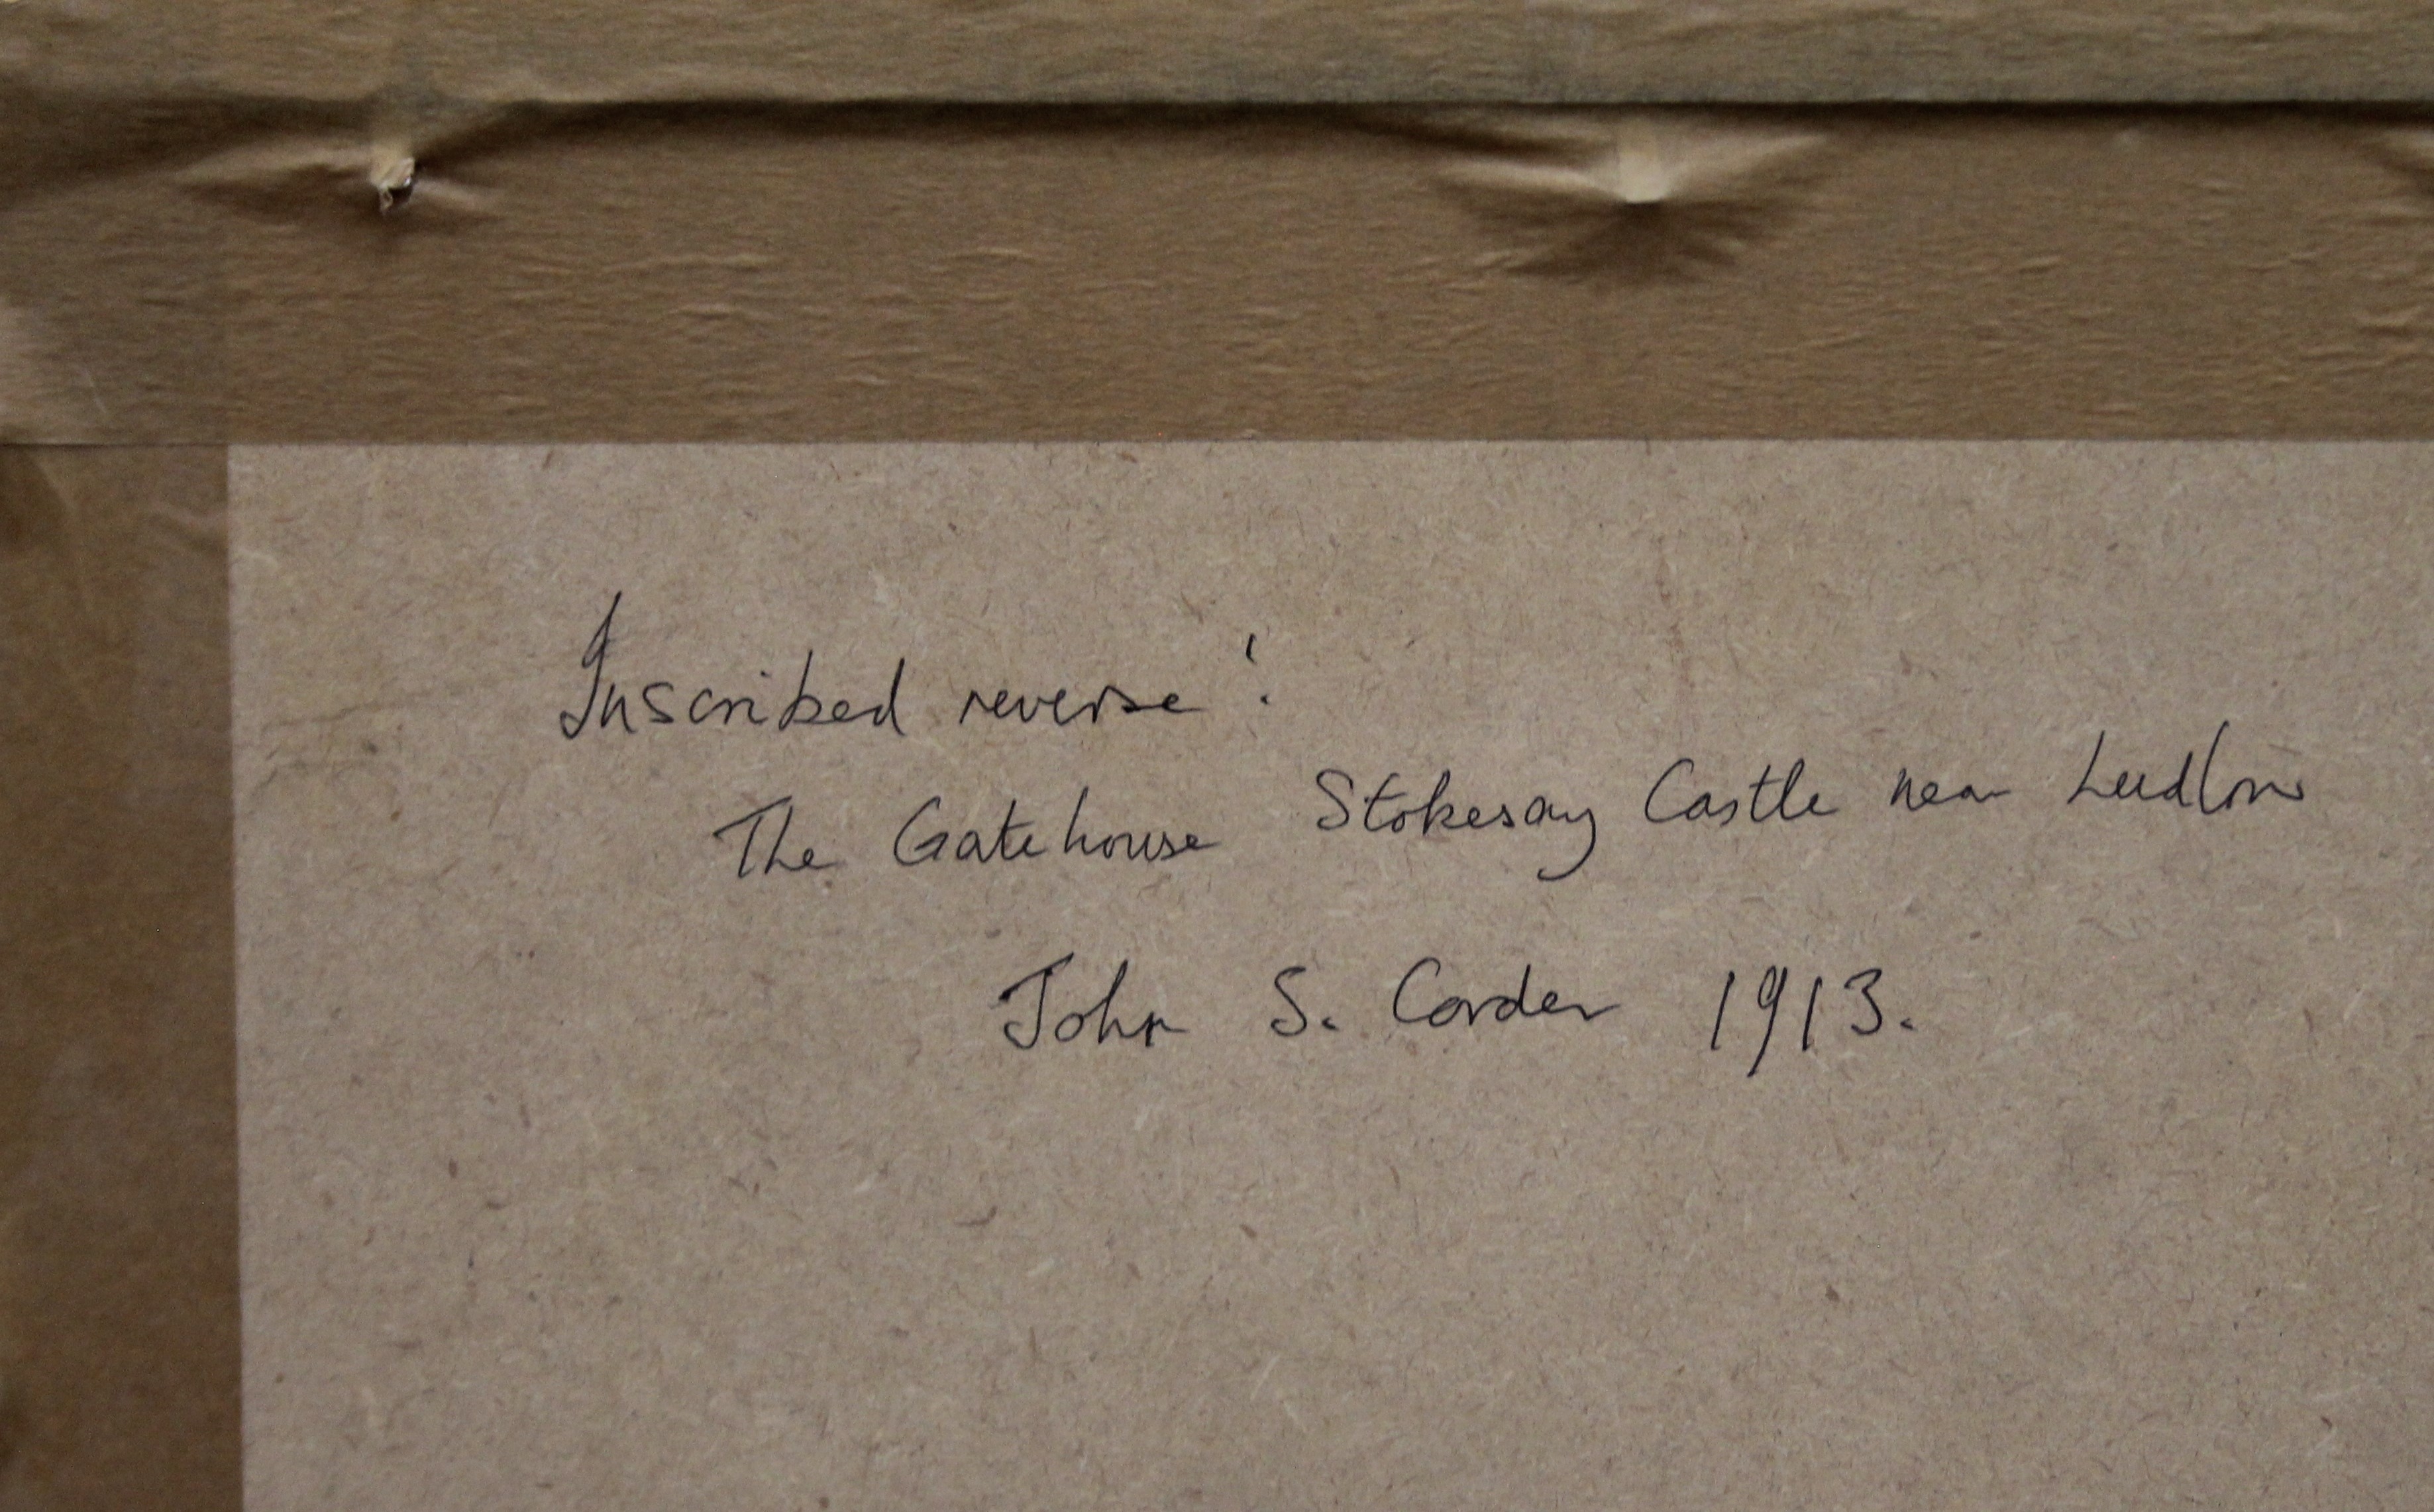 Inscribed reverse :
The Gatehouse Stokesay Castle near Ludlow
John S. Corder 1913.